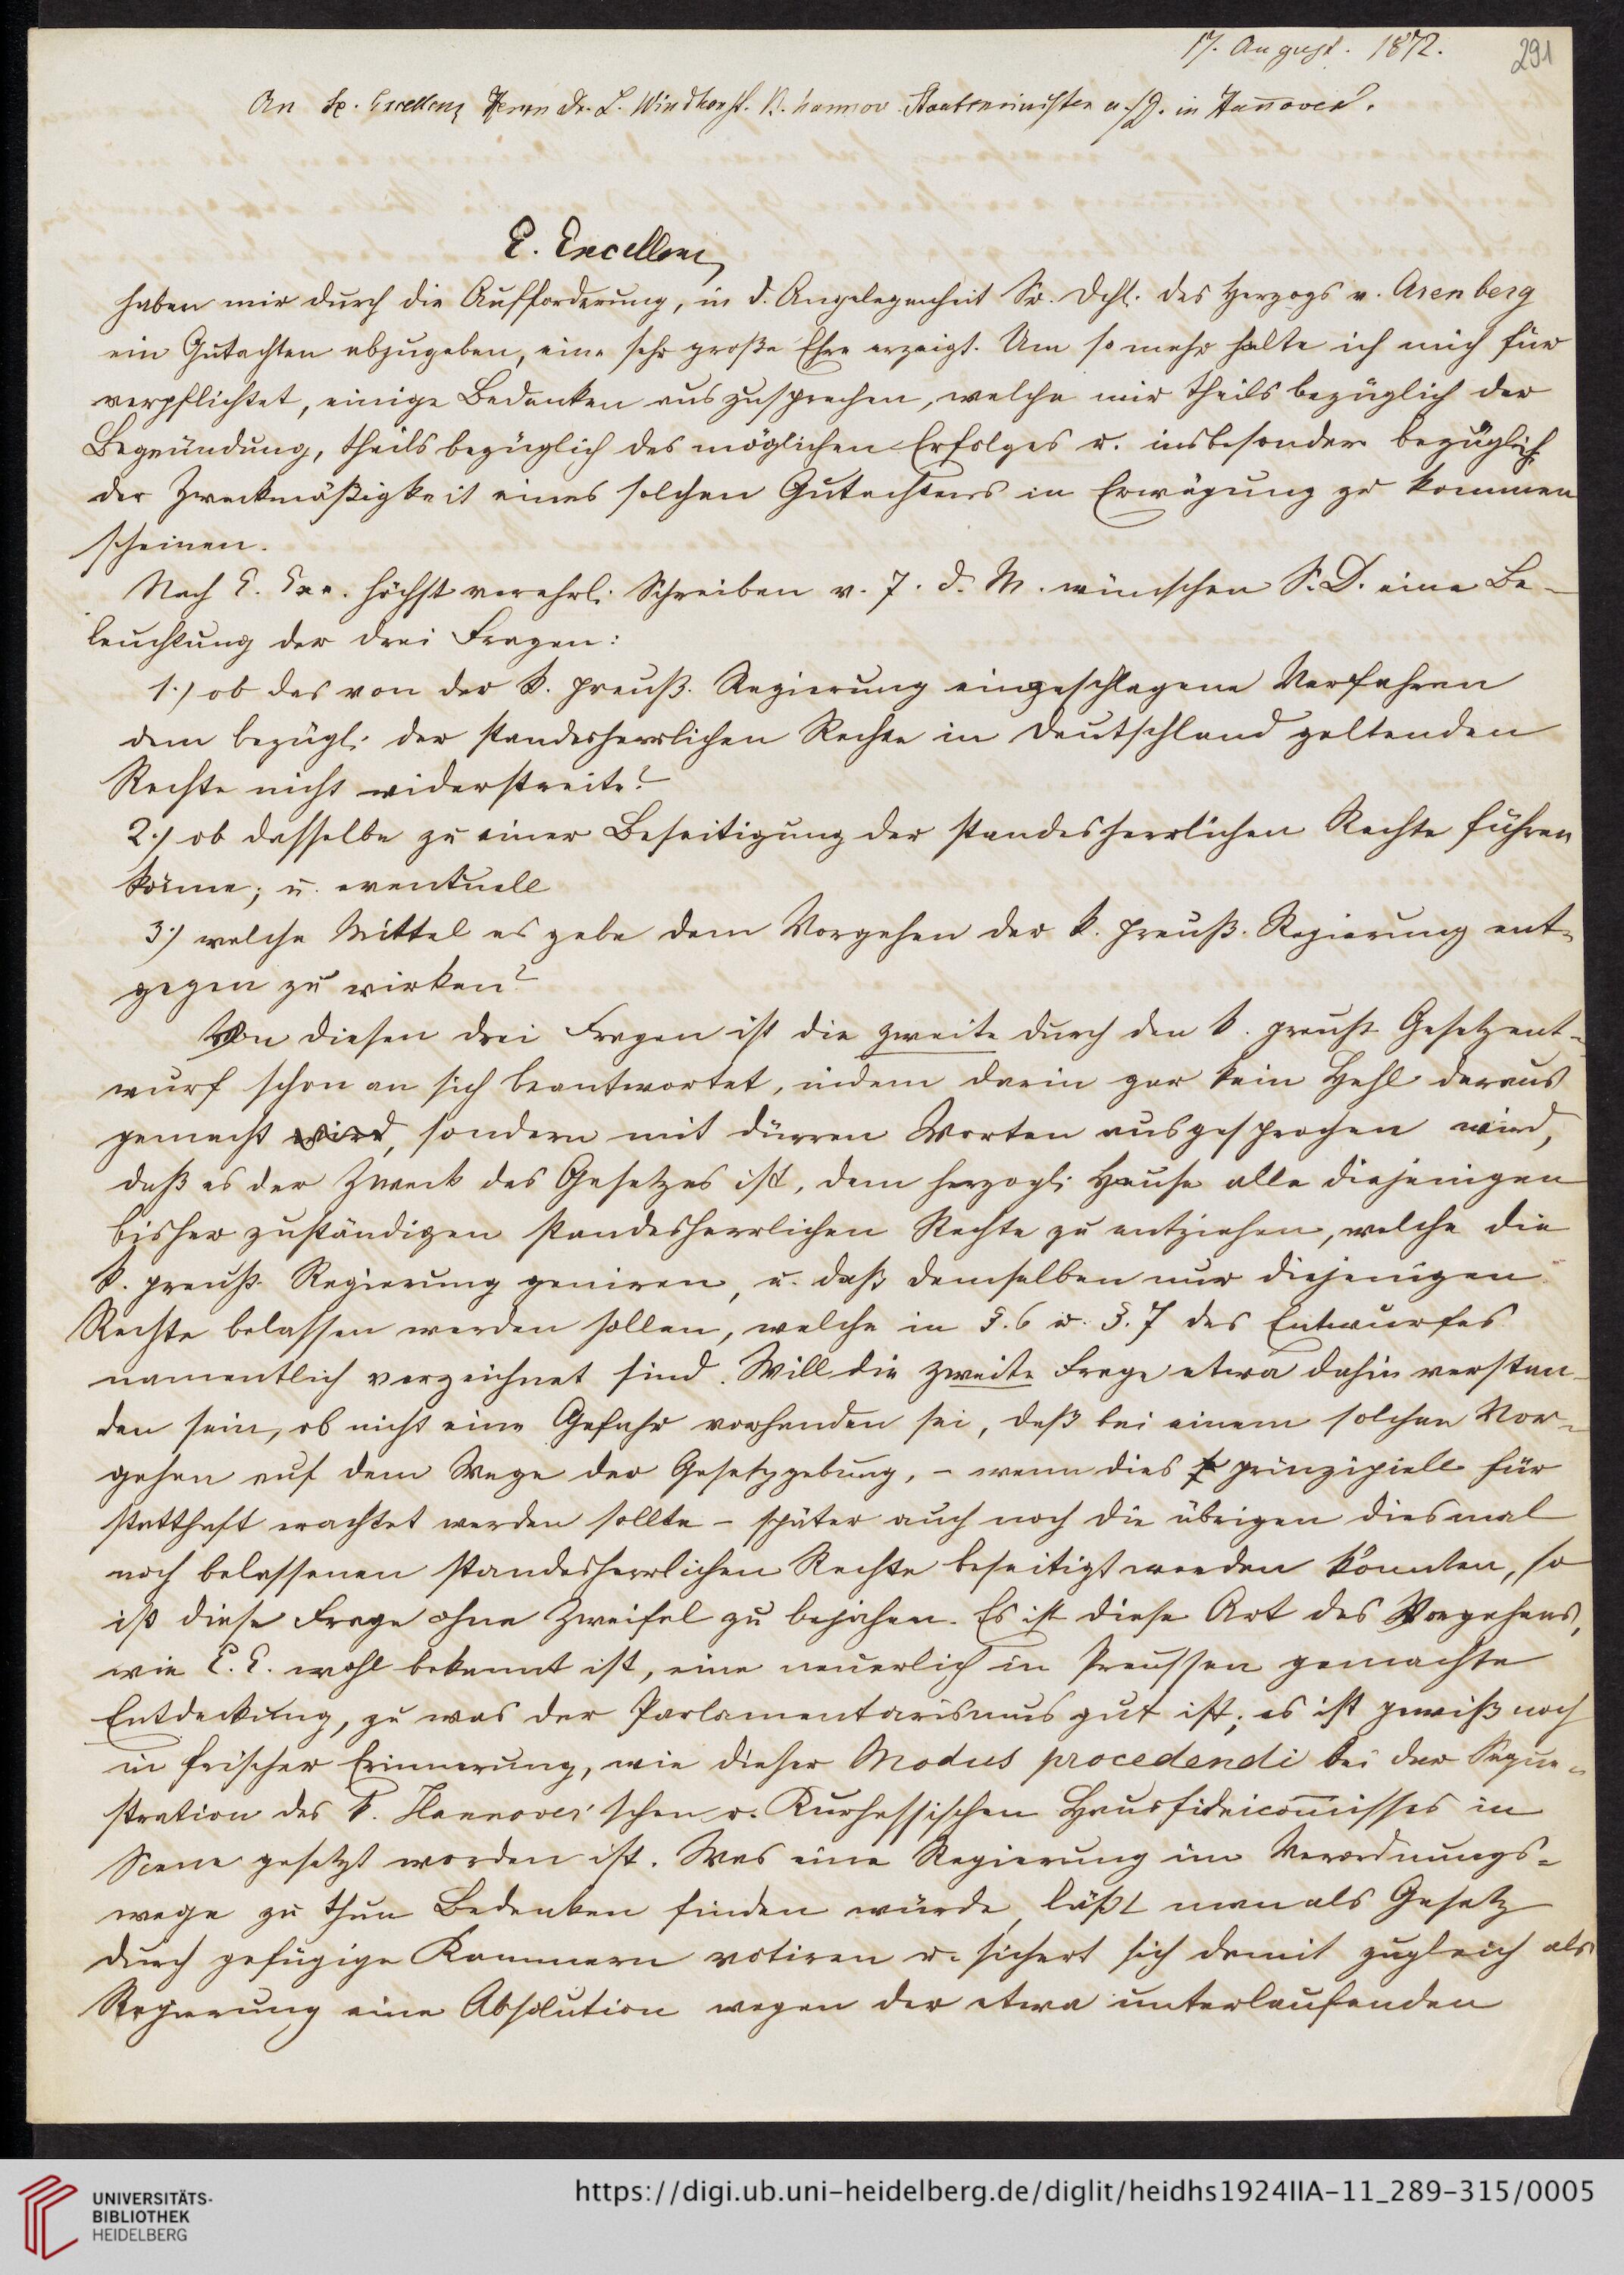 17. August. 1872.
291
An Se. Excellenz Herrn Dr. L. Windthorst. K. hannov. Staatsminister a. D. in Hannover.
E. Excellenz
haben mir durch die Aufforderung, in d. Angelegenheit Sr. Dchl. des Herzogs v. Arenberg
ein Gutachten abzugeben, eine sehr große Ehre erzeigt. Um so mehr halte ich mich für
verpflichtet, einige Bedenken auszusprechen, welche mir theils bezüglich der
Begründung, theils bezüglich des möglichen Erfolges u. insbesondere bezüglich
der Zweckmäßigkeit eines solchen Gutachtens in Erwägung zu kommen
scheinen.
Nach E. Exc. höchst verehrl. Schreiben v. 7. d. M. wünschen S. D. eine Be-
leuchtung der drei Fragen:
1.) ob das von der k. preuß. Regierung eingeschlagene Verfahren
dem bezügl. der standesherrlichen Rechte in Deutschland geltenden
Rechte nicht widerstreite?
2.) ob dasselbe zu einer Beseitigung der standesherrlichen Rechte führen
könne; u. eventuell
3.) welche Mittel es gebe dem Vorgehen der k. preuß. Regierung ent-
gegen zu wirken?
Von diesen drei Fragen ist die zweite durch den k. preuß. Gesetzent-
wurf schon an sich beantwortet, indem darin gar kein Hehl daraus
gemacht wird, sondern mit dürren Worten ausgesprochen wird,
daß es der Zweck des Gesetzes ist, dem herzogl. Hause alle diejenigen
bisher zuständigen standesherrlichen Rechte zu entziehen, welche die
k. preuß. Regierung geniren, u. daß demselben nur diejenigen
Rechte belassen werden sollen, welche in §. 6 u. §. 7 des Entwurfes
namentlich verzeichnet sind. Will die zweite Frage etwa dahin verstan-
den sein, ob nicht eine Gefahr vorhanden sei, daß bei einem solchen Vor-
gehen auf dem Wege der Gesetzgebung, - wenn dies prinzipiell für
statthaft erachtet werden sollte - später auch noch die übrigen diesmal
noch belassenen standesherrlichen Rechte beseitigt werden könnten, so
ist diese Frage ohne Zweifel zu bejahen. Es ist diese Art des Vorgehens,
wie E. E. wohl bekannt ist, eine neuerlich in Preussen gemachte
Entdeckung, zu was der Parlamentarismus gut ist; es ist gewiß noch
in frischer Erinnerung, wie dieser Modus procedendi bei der Seque-
stration des k. Hannover'schen u. Kurhessischen Hausfideicom̄isses in
Scene gesetzt worden ist. Was eine Regierung im Verordnungs-
wege zu thun Bedenken finden würde, läßt man als Gesetz
durch gefügige Kammern votiren u. sichert sich damit zugleich als
Regierung eine Absolution wegen der etwa unterlaufenden
UNIVERSITÄTS-
BIBLIOTHEK
HEIDELBERG
https://digi.ub.uni-heidelberg.de/diglit/heidhs1924IIA-11_289-315/0005